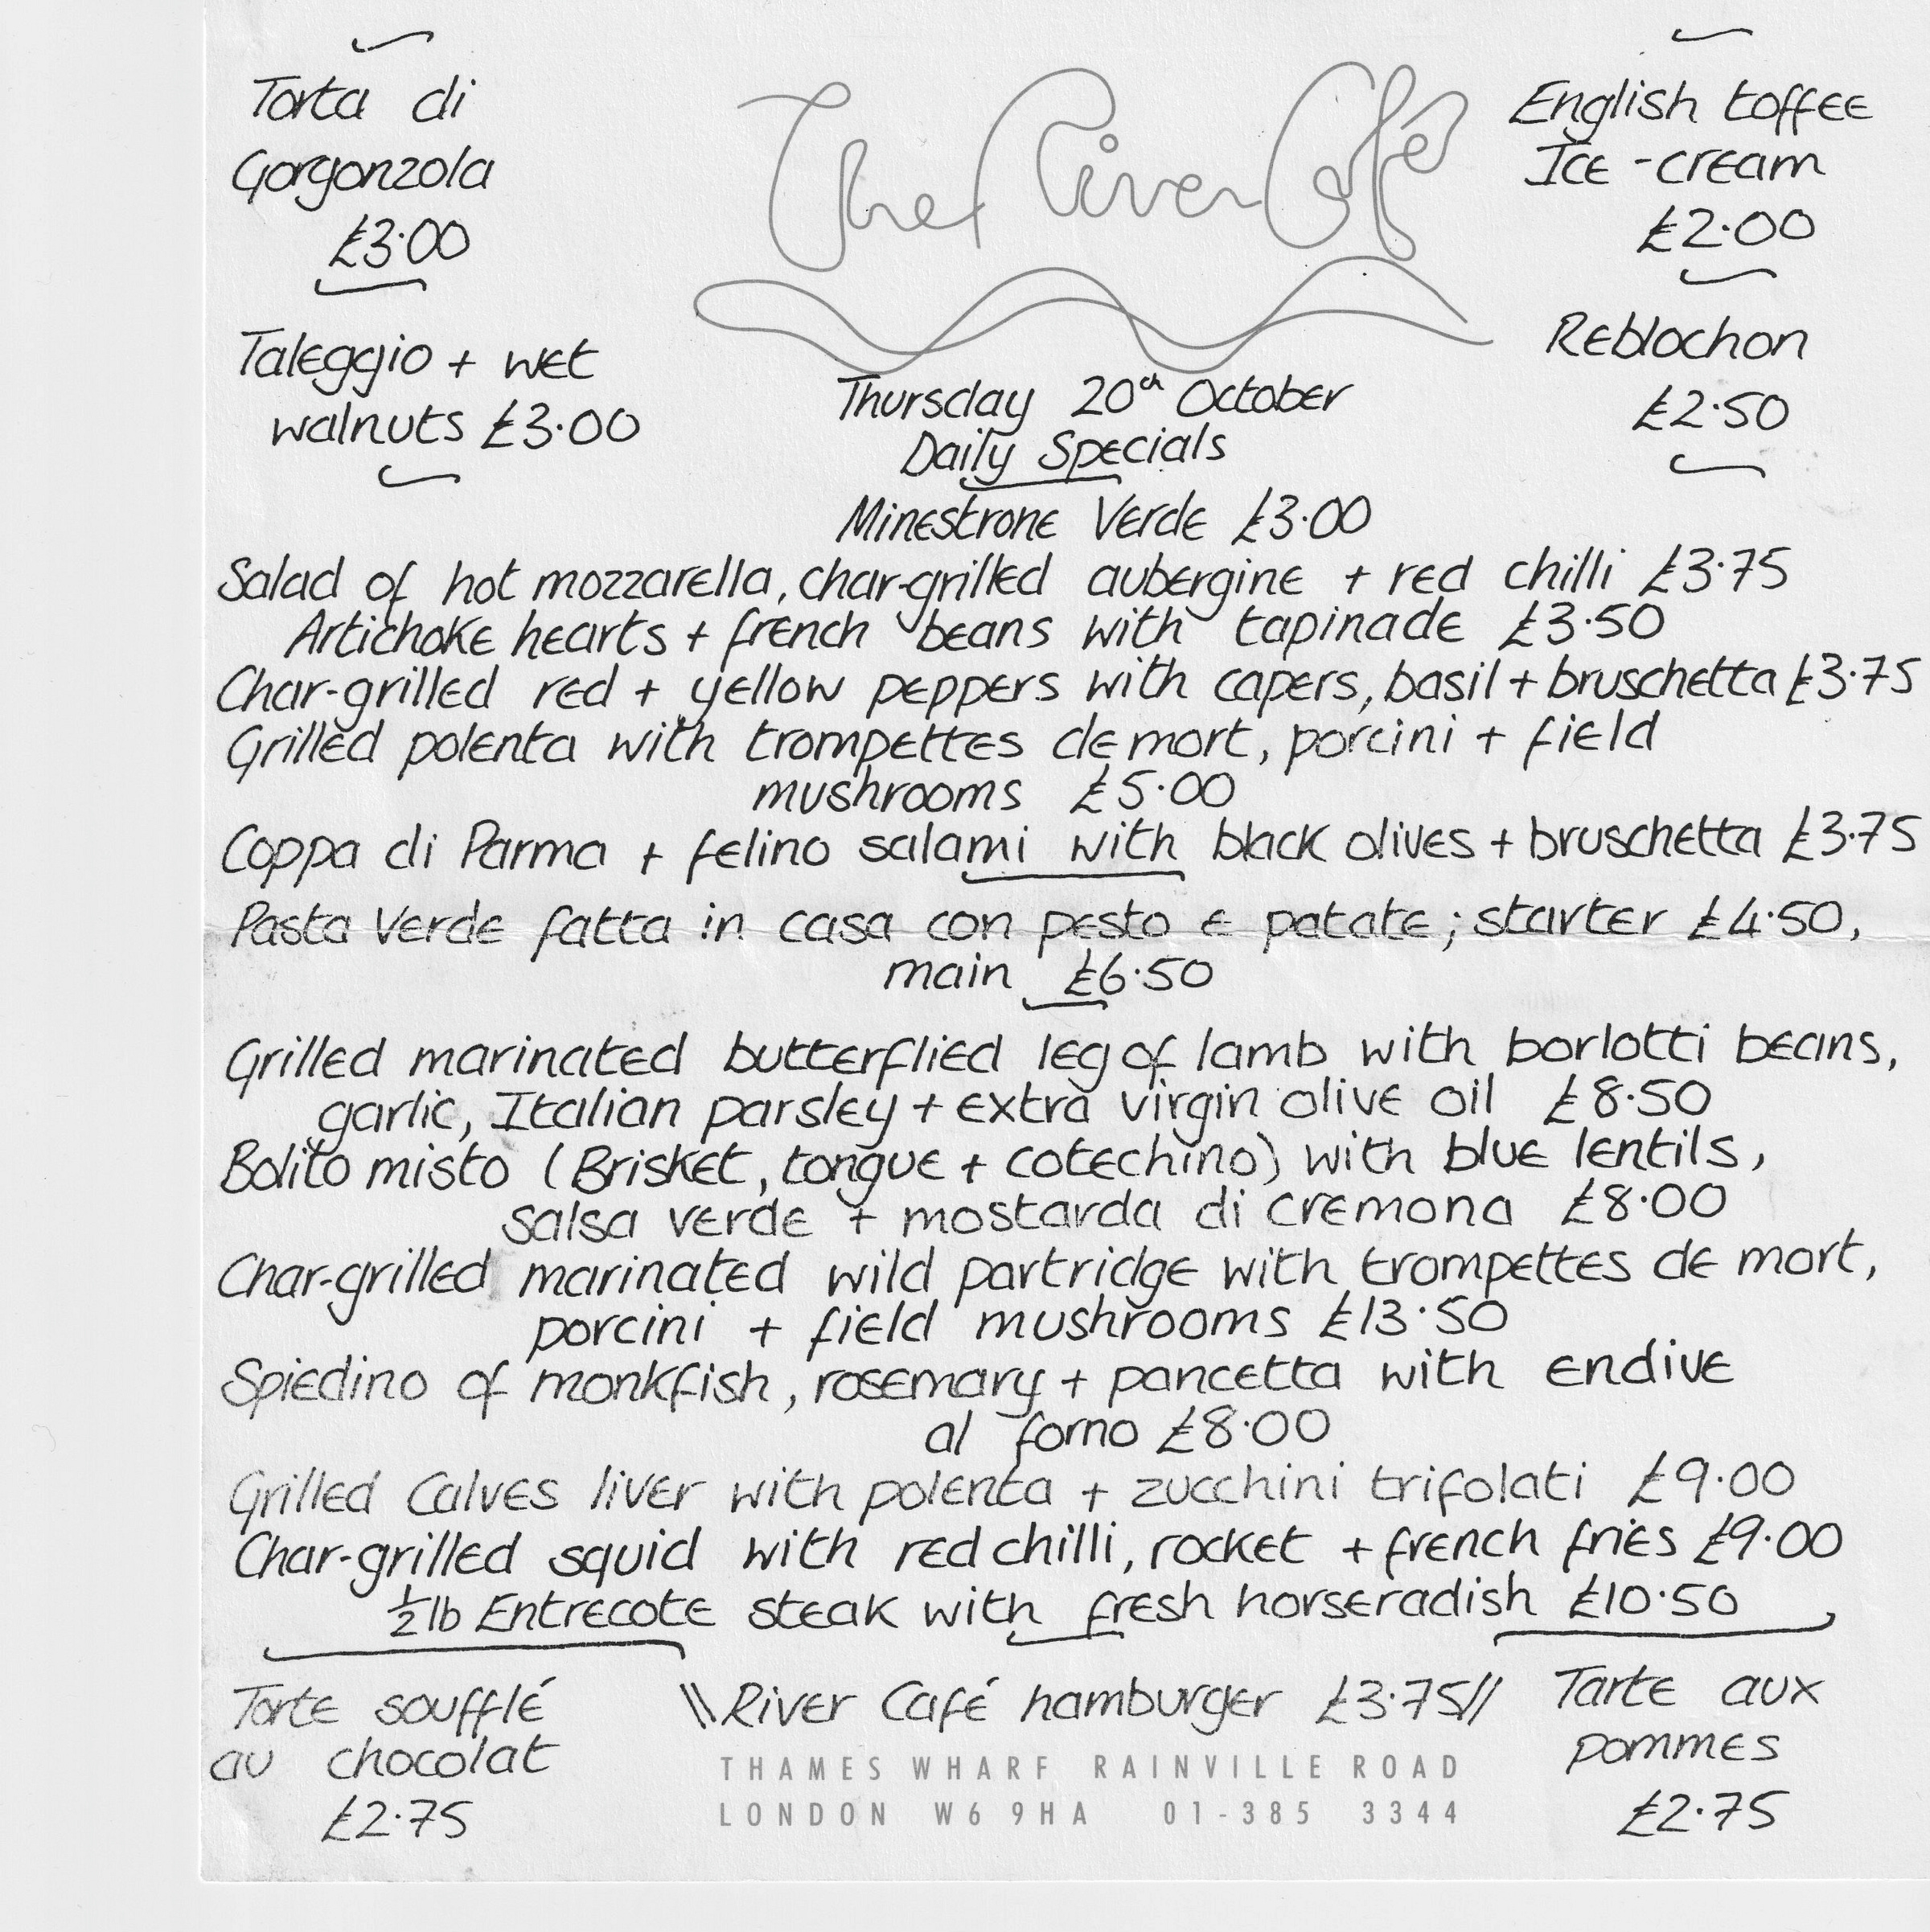 Torta di
Gorgonzola
£3·00
Taleggio + wet
walnuts £3·00
The River Café
English toffee
Ice-cream
£2·00
Reblochon
£2·50
Thursday 20th October
Daily Specials
Minestrone Verde £3·00
Salad of hot mozzarella, char-grilled aubergine + red chilli £3·75
Artichoke hearts + french beans with tapinade £3·50
Char-grilled red + yellow peppers with capers, basil + bruschetta £3·75
Grilled polenta with trompettes de mort, porcini + field
mushrooms £5·00
Coppa di Parma + felino salami with black olives + bruschetta £3·75
Pasta Verde fatta in casa con pesto e patate; starter £4·50,
main £6·50
Grilled marinated butterflied leg of lamb with borlotti beans,
garlic, Italian parsley + extra virgin olive oil £8·50
Bolito misto (Brisket, tongue + cotechino) with blue lentils,
salsa verde + mostarda di cremona £8·00
Char-grilled marinated wild partridge with trompettes de mort,
porcini + field mushrooms £13·50
Spiedino of monkfish, rosemary + pancetta with endive
al forno £8·00
Grilled Calves liver with polenta + zucchini trifolati £9·00
Char-grilled squid with red chilli, rocket + french fries £9·00
½ lb Entrecote steak with fresh horseradish £10·50
Torte soufflé
au chocolat
£2·75
\\River Café hamburger £3·75//
THAMES WHARF RAINVILLE ROAD
LONDON W6 9HA 01-385 3344
Tarte aux
pommes
£2·75